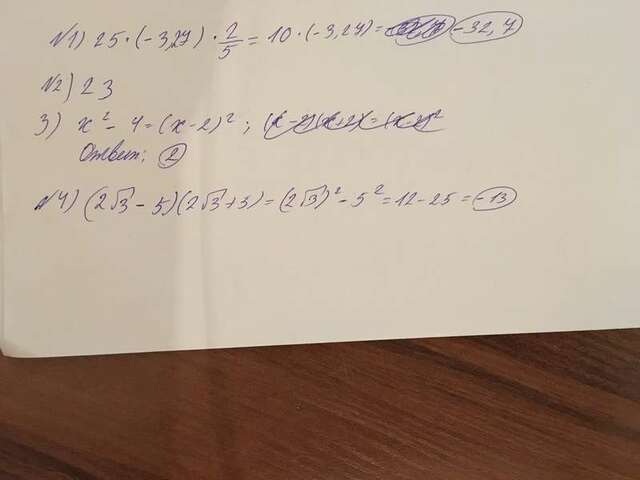 N1) 25 · (-3,27) · 2/5 = 10 · (-3,27) = -32,7
N2) 23
3) x² - 4 = (x-2)²;
Ответ: 2
N4) (2√3 - 5)(2√3 + 5) = (2√3)² - 5² = 12 - 25 = -13